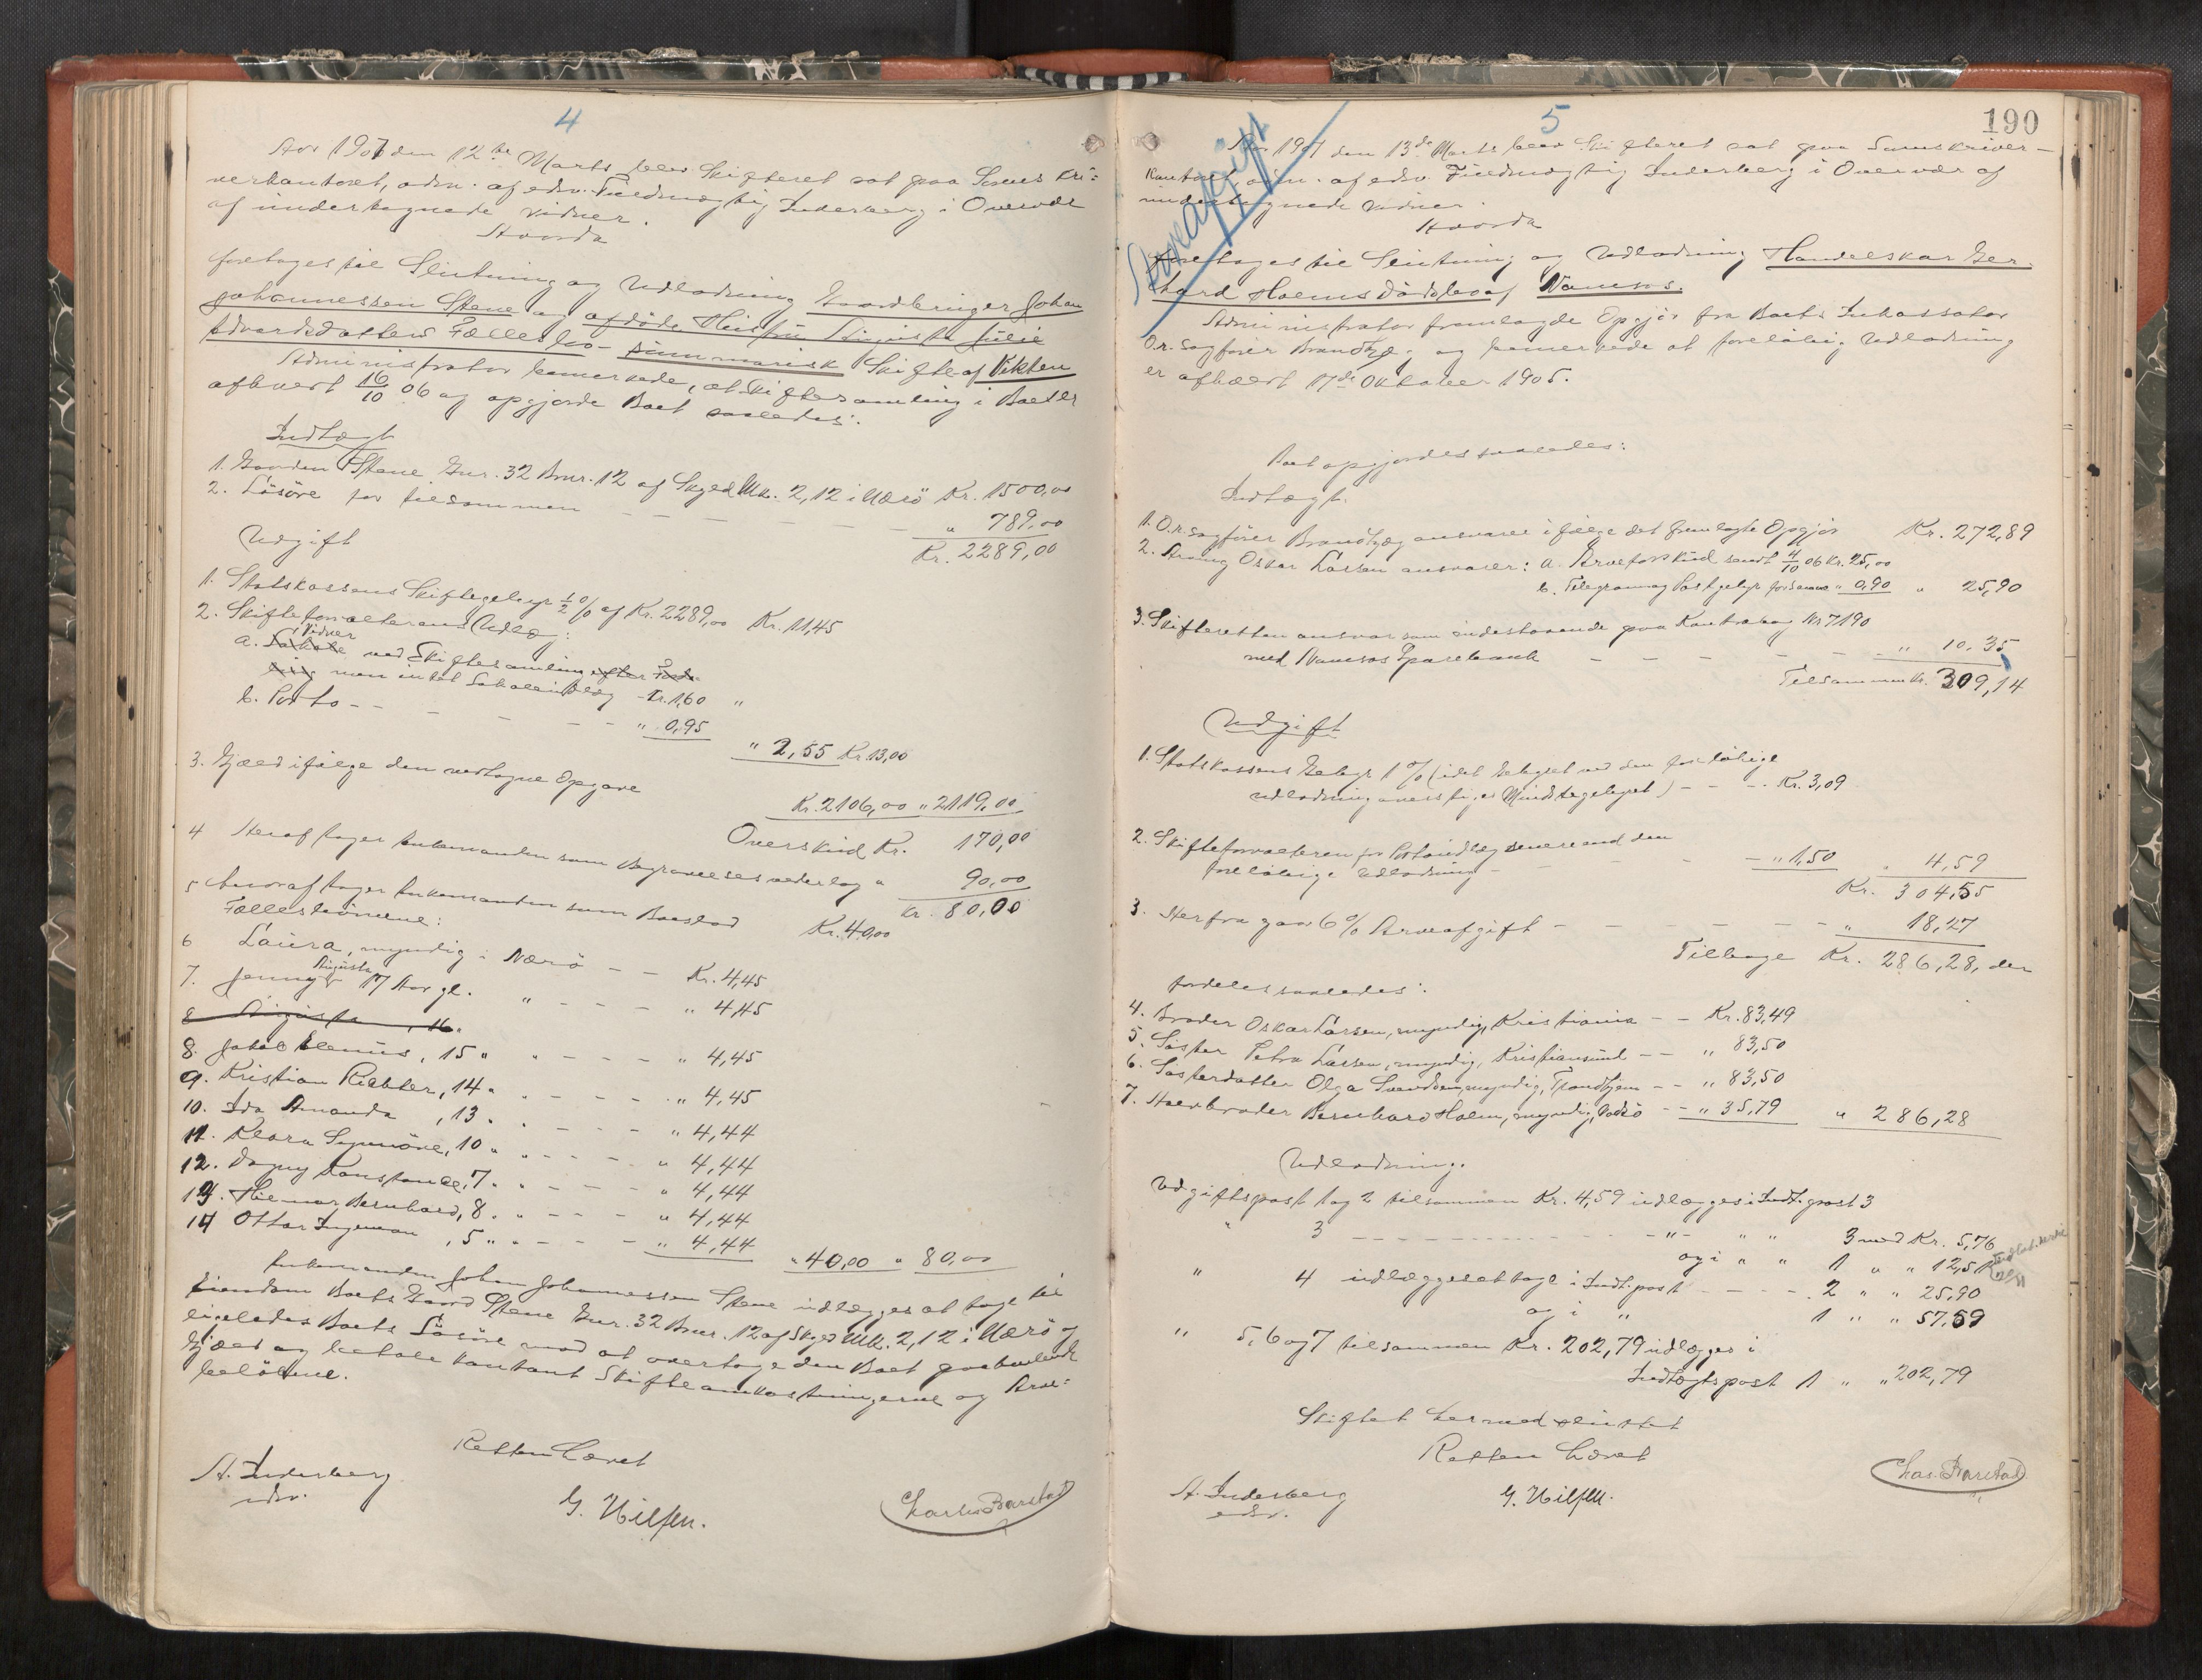 4
Aar 1907 den 12te Marts blev Skifteret sat paa Sorenskri-
verkontoret, adm. af edsv. Fuldmægtig Inderberg i Overvær
af undertegnede Vidner.
Hvorda
foretoges til Slutning og Udlodning Gaardbruger Johan
Johannessen Stene og afdøde Hustru
Edvardsdatters Fællesbo - summarisk Skifte af Vikten
Administrator bemerkede, at Skiftesamling i Boet er
afholdt 16/10 06 og opgjorde Boet saaledes:
Indtægt
1. Gaarden Stene Gnr. 32 Bnr. 12 af Skyld Mk. 2,12 i Nærö Kr. 1500,00
2. Lösöre for tilsammen - - - - - " 789,00
Kr. 2289,00
Udgift
1. Statskassens Skiftegebyr 1/2 % af Kr. 2289,00 Kr. 11,45
2. Skifteforvalterens Udlæg:
a. Vidner ved Skiftesamling efter
men intet Lokaleudlæg - Kr. 1,60 "
b. Porto - - - - - - " 0,95
" 2,55 Kr. 13,00
3. Gjæld ifølge den vedtagne Opgave
Kr. 2106,00 " 2119,00
Overskud Kr. 170,00
4 Heraf tager Enkemanden som Begravelsesvederlag " 90,00
Kr. 80,00
5 Hvoraf tager Enkemanden som Boeslod Kr. 40,00
Fællesbörnene:
6 Laura, myndig i Nærö - - Kr. 4,45
7. Jenny Augusta 17 Aar gl. " - - - " 4,45
8 Augusta, 16 "
8. Jakob Elenius, 15 " " - - - - " 4,45
9. Kristian Richter, 14 " " - - - - " 4,45
10. Ida Amanda, 13 " " - - - " 4,44
11. Klara Synnöve, 10 " " - - - - " 4,44
12. Dagny Konstance, 7 " " - - - - " 4,44
13. Hilmar Bernhard, 8 " " - - - " 4,44
14 Ottar Ingeman, 5 " " - - - " 4,44
" 40,00 " 80,00
Enkemanden Johan Johannessen Stene udlægges at tage til
Eiendom Boets Gaard Stene Gnr. 32 Bnr. 12 af Skyld Mk. 2,12 i Nærö og
ligeledes Boets Lösöre mod at overtage den Boet paahvilende
Gjæld og betale kontant Skifteomkostningerne og Arve-
belöbene.
Retten hævet
A. Inderberg
edsv.
G. Nilsen.
Charles Barstad
190
5
Arveafgift
Aar 1907 den 13de Marts blev Skifteret sat paa Sorenskriver-
kontoret, adm. af edsv. Fuldmægtig Inderberg i Overvær af
undertegnede Vidner.
Hvorda
foretoges til Slutning og Udlodning Handelskar Ger-
hard Holms Dödsbo af Namsos.
Administrator fremlagde Opgjör fra Boets Inkassator
O.r.sagförer Brandtzæg og bemerkede at forelöbig Udlodning
er afholdt 17de Oktober 1905.
Boet opgjordes saaledes:
Indtægt.
1. O.r.sagförer Brandtzæg ansvarer ifølge det fremlagte Opgjör Kr. 272,89
2. Arving Oskar Larsen ansvarer: a. Arveforskud sendt 4/10 06 Kr. 25,00
b. Telegram og Postgebyr for samme " 0,90 " 25,90
3. Skifteretten ansvar som indestaaende paa Kontrabog Nr 7190
med Namsos Sparebank - - - - - - " 10,35
Tilsammen Kr. 309,14
Udgift
1. Statskassens Gebyr 1 % (idet Gebyret ved den forelöbige
Udlodning oversteg Mindstegebyret) - - - Kr. 3,09
2. Skifteforvalteren for Portoudlæg senere end den
forelöbige Udlodning - - - - " 1,50 " 4,59
Kr. 304,55
3. Herfra gaar 6 % Arveafgift - - - - - - " 18,27
Tilbage Kr. 286,28, der
fordeles saaledes:
4. Broder Oskar Larsen, myndig, Kristiania - - Kr. 83,49
5. Söster Petra Larsen, myndig, Kristiansund - - " 83,50
6. Sösterdatter Olga Svendsen, myndig, Trondhjem - - " 83,50
7. Halvbroder Bernhard Holm, myndig, Vadsö - - " 35,79 " 286,28
Udlodning.
Udgiftspost 1 og 2 tilsammen Kr. 4,59 udlægges i Indt.post 3
" 3 - - - - - - - - - " - " " 3 med Kr. 5,76
og i " " 1 " " 12,51
" 4 udlægges at tage i Indt.post - - - - 2 " " 25,90
og i " 1 " " 57,59
" 5, 6 og 7 tilsammen Kr. 202,79 udlægges i
Indtægtspost 1 " " 202,79
Skiftet hermed sluttet
Retten hævet
A. Inderberg
edsv.
G. Nilsen.
Chas. Barstad